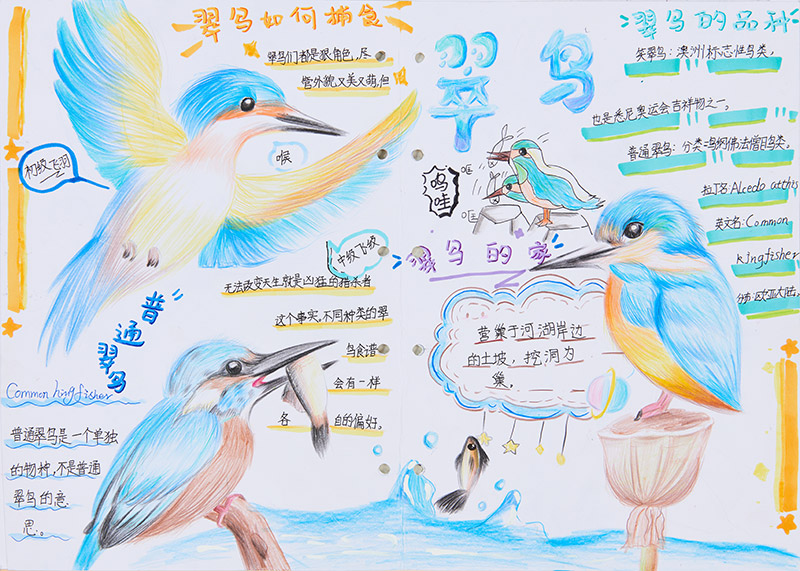 翠鸟如何捕食
翠鸟们都是狠角色,尽
管外貌又美又萌,但
初级飞羽
喉
中级飞羽
无法改变天生就是凶猛的猎杀者
这个事实,不同种类的翠
鸟食谱
会有一样
各 自的偏好。
普通翠鸟
Common kingfisher
普通翠鸟是一个单独
的物种,不是普通
翠鸟的意
思。
翠鸟
呜哇
哐
哐
翠鸟的家
营巢于河湖岸边
的土坡,挖洞为
巢。
翠鸟的品种
笑翠鸟:澳洲标志性鸟类,
也是悉尼奥运会吉祥物之一。
普通翠鸟:分类:鸟纲佛法僧目鸟类。
拉丁名Alcedo atthis
英文名:Common
kingfisher
分布:欧亚大陆,